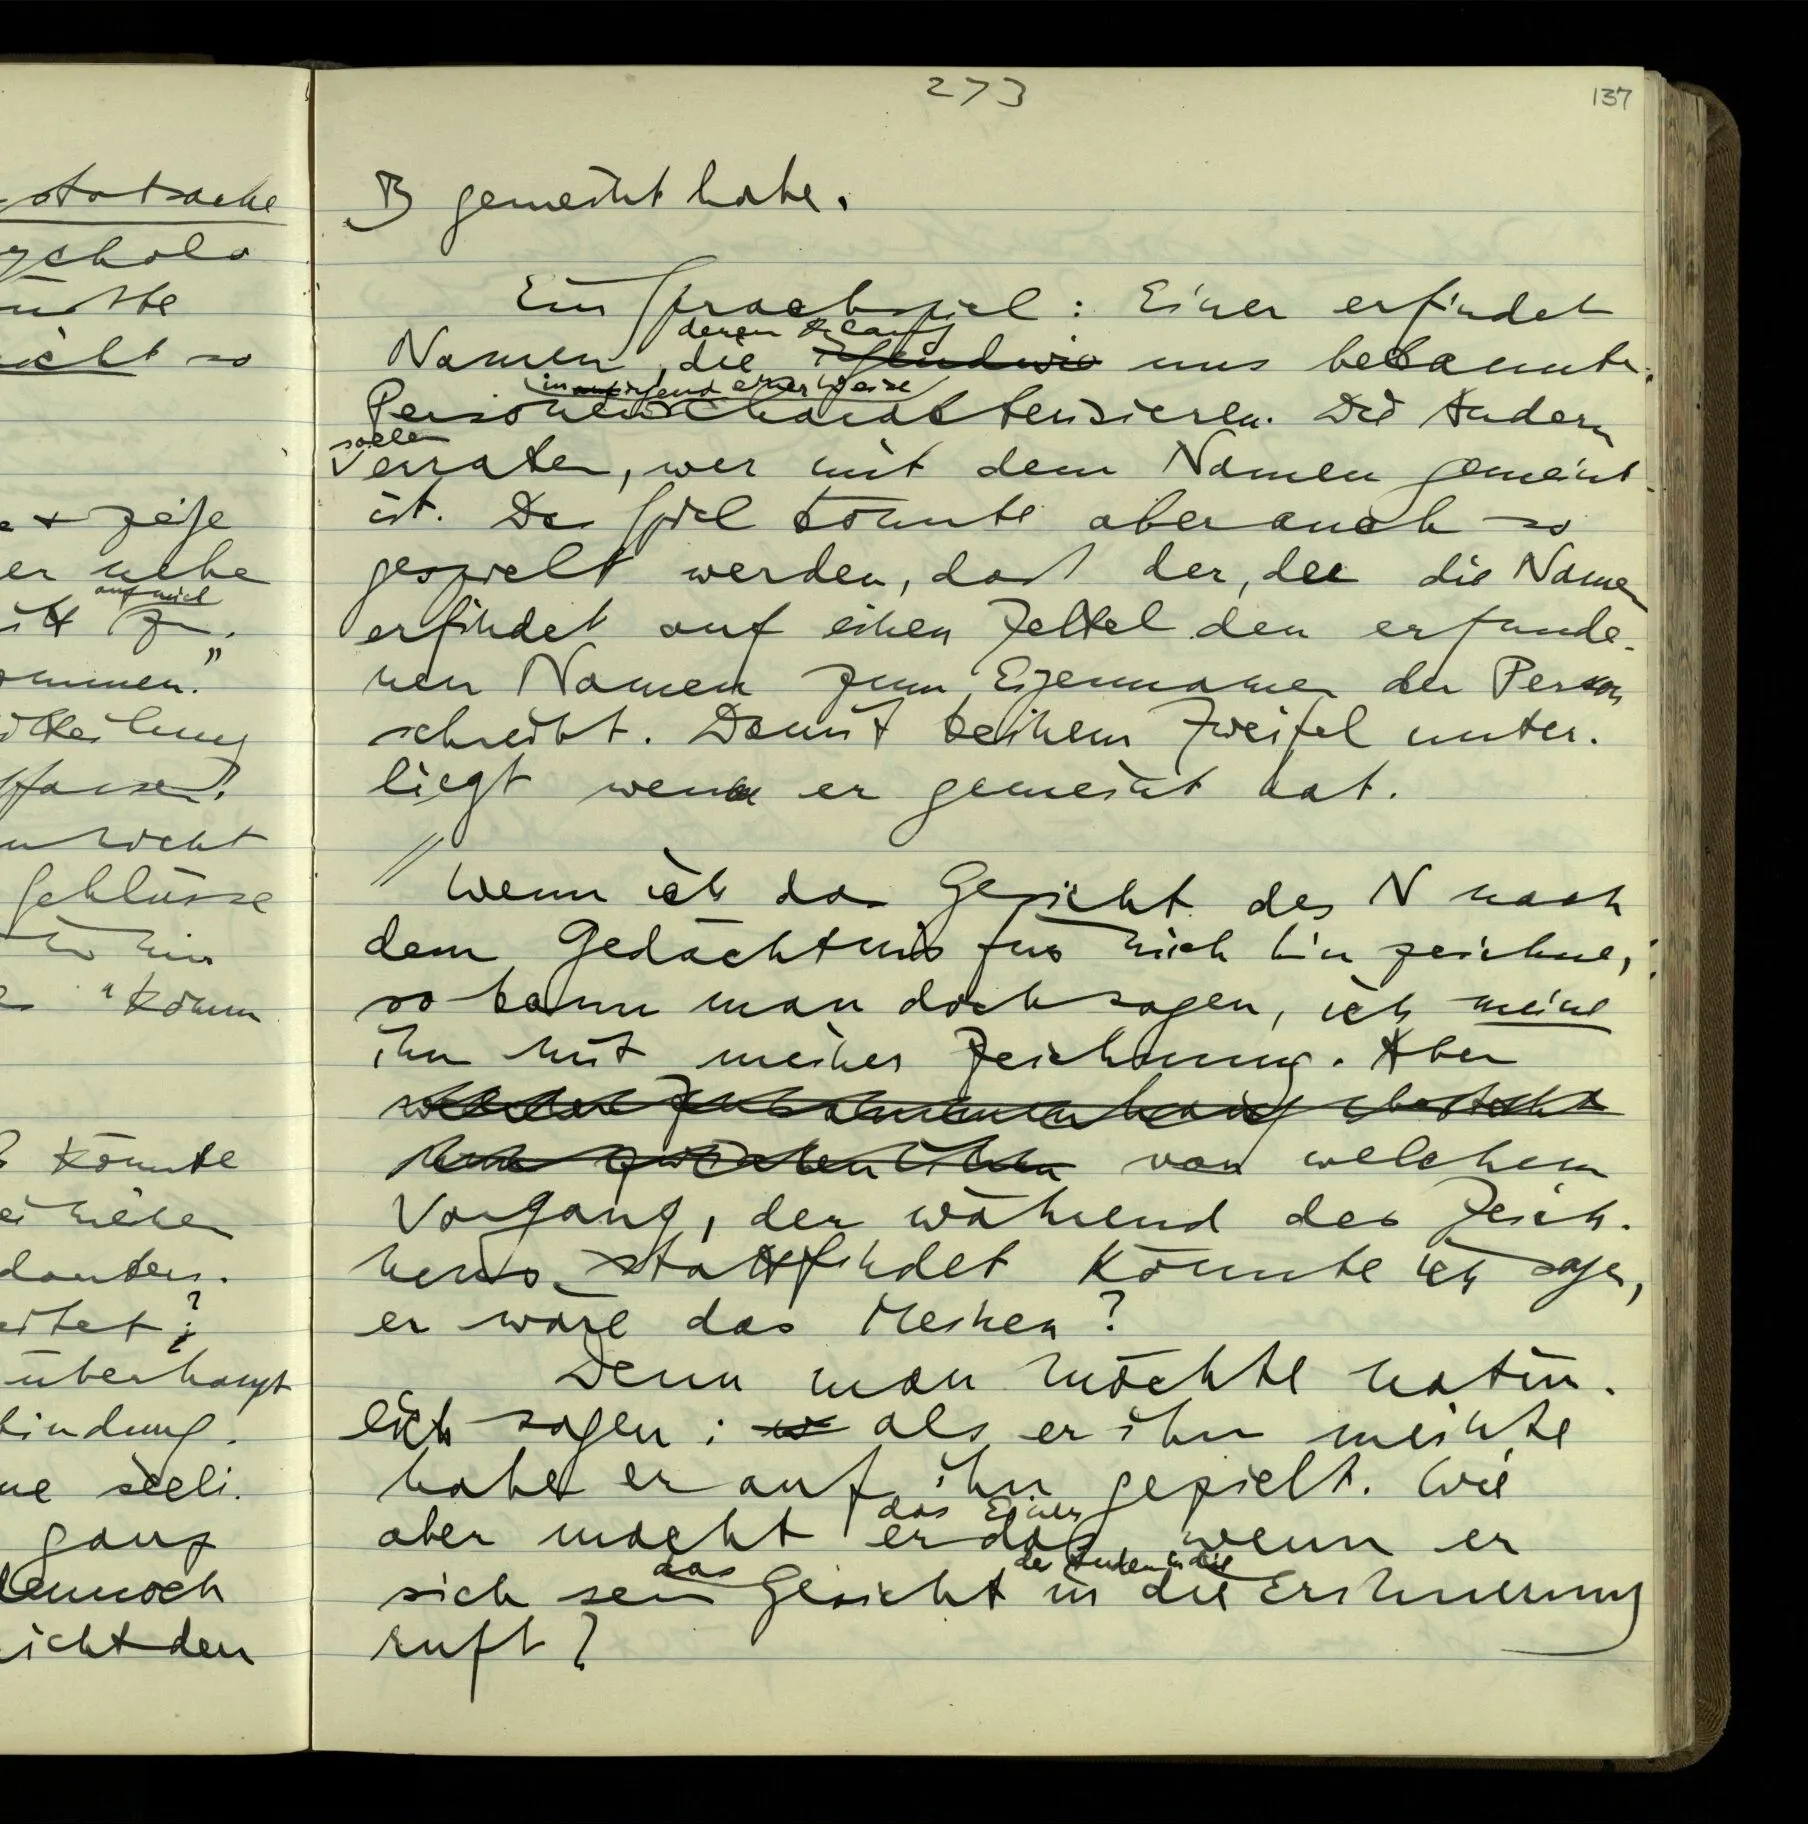 273
137
B gemeint habe.
Ein Sprachspiel: Einer erfindet
deren Klang
Namen, die irgendwie uns bekannte
in irgend einer Weise
Personen charakterisieren. Die Andern
sollen
erraten, wer mit dem Namen gemeint
ist. Das Spiel könnte aber auch so
gespielt werden, daß der, der die Namen
erfindet auf einen Zettel den erfunde-
nen Namen zum Eigennamen der Person
schreibt. Damit keinem Zweifel unter-
liegt wen er gemeint hat.
// Wenn ich das Gesicht des N nach
dem Gedächtnis für mich hin zeichne,
so kann man doch sagen, ich meine
ihn mit meiner Zeichnung. Aber
welcher Zusammenhang besteht
zwischen ihnen von welchem
Vorgang, der während des Zeich-
nens stattfindet könnte ich sagen,
er wäre das Meinen?
Denn man möchte natür-
lich sagen: als er ihn meinte
habe er auf ihn gezielt. Wie
das Einer
aber macht er das, wenn er
das des Andern in die
sich sein Gesicht in die Erinnerung
ruft?
tatsache
ycholo
icht so
+ zeige
er
auf mich
zu.
ommen."
itteilung
ffassen?
nicht
hin
"Komm
könnte
tet?
überhaupt
bindung.
ne seeli-
ganz
dennoch
nicht den